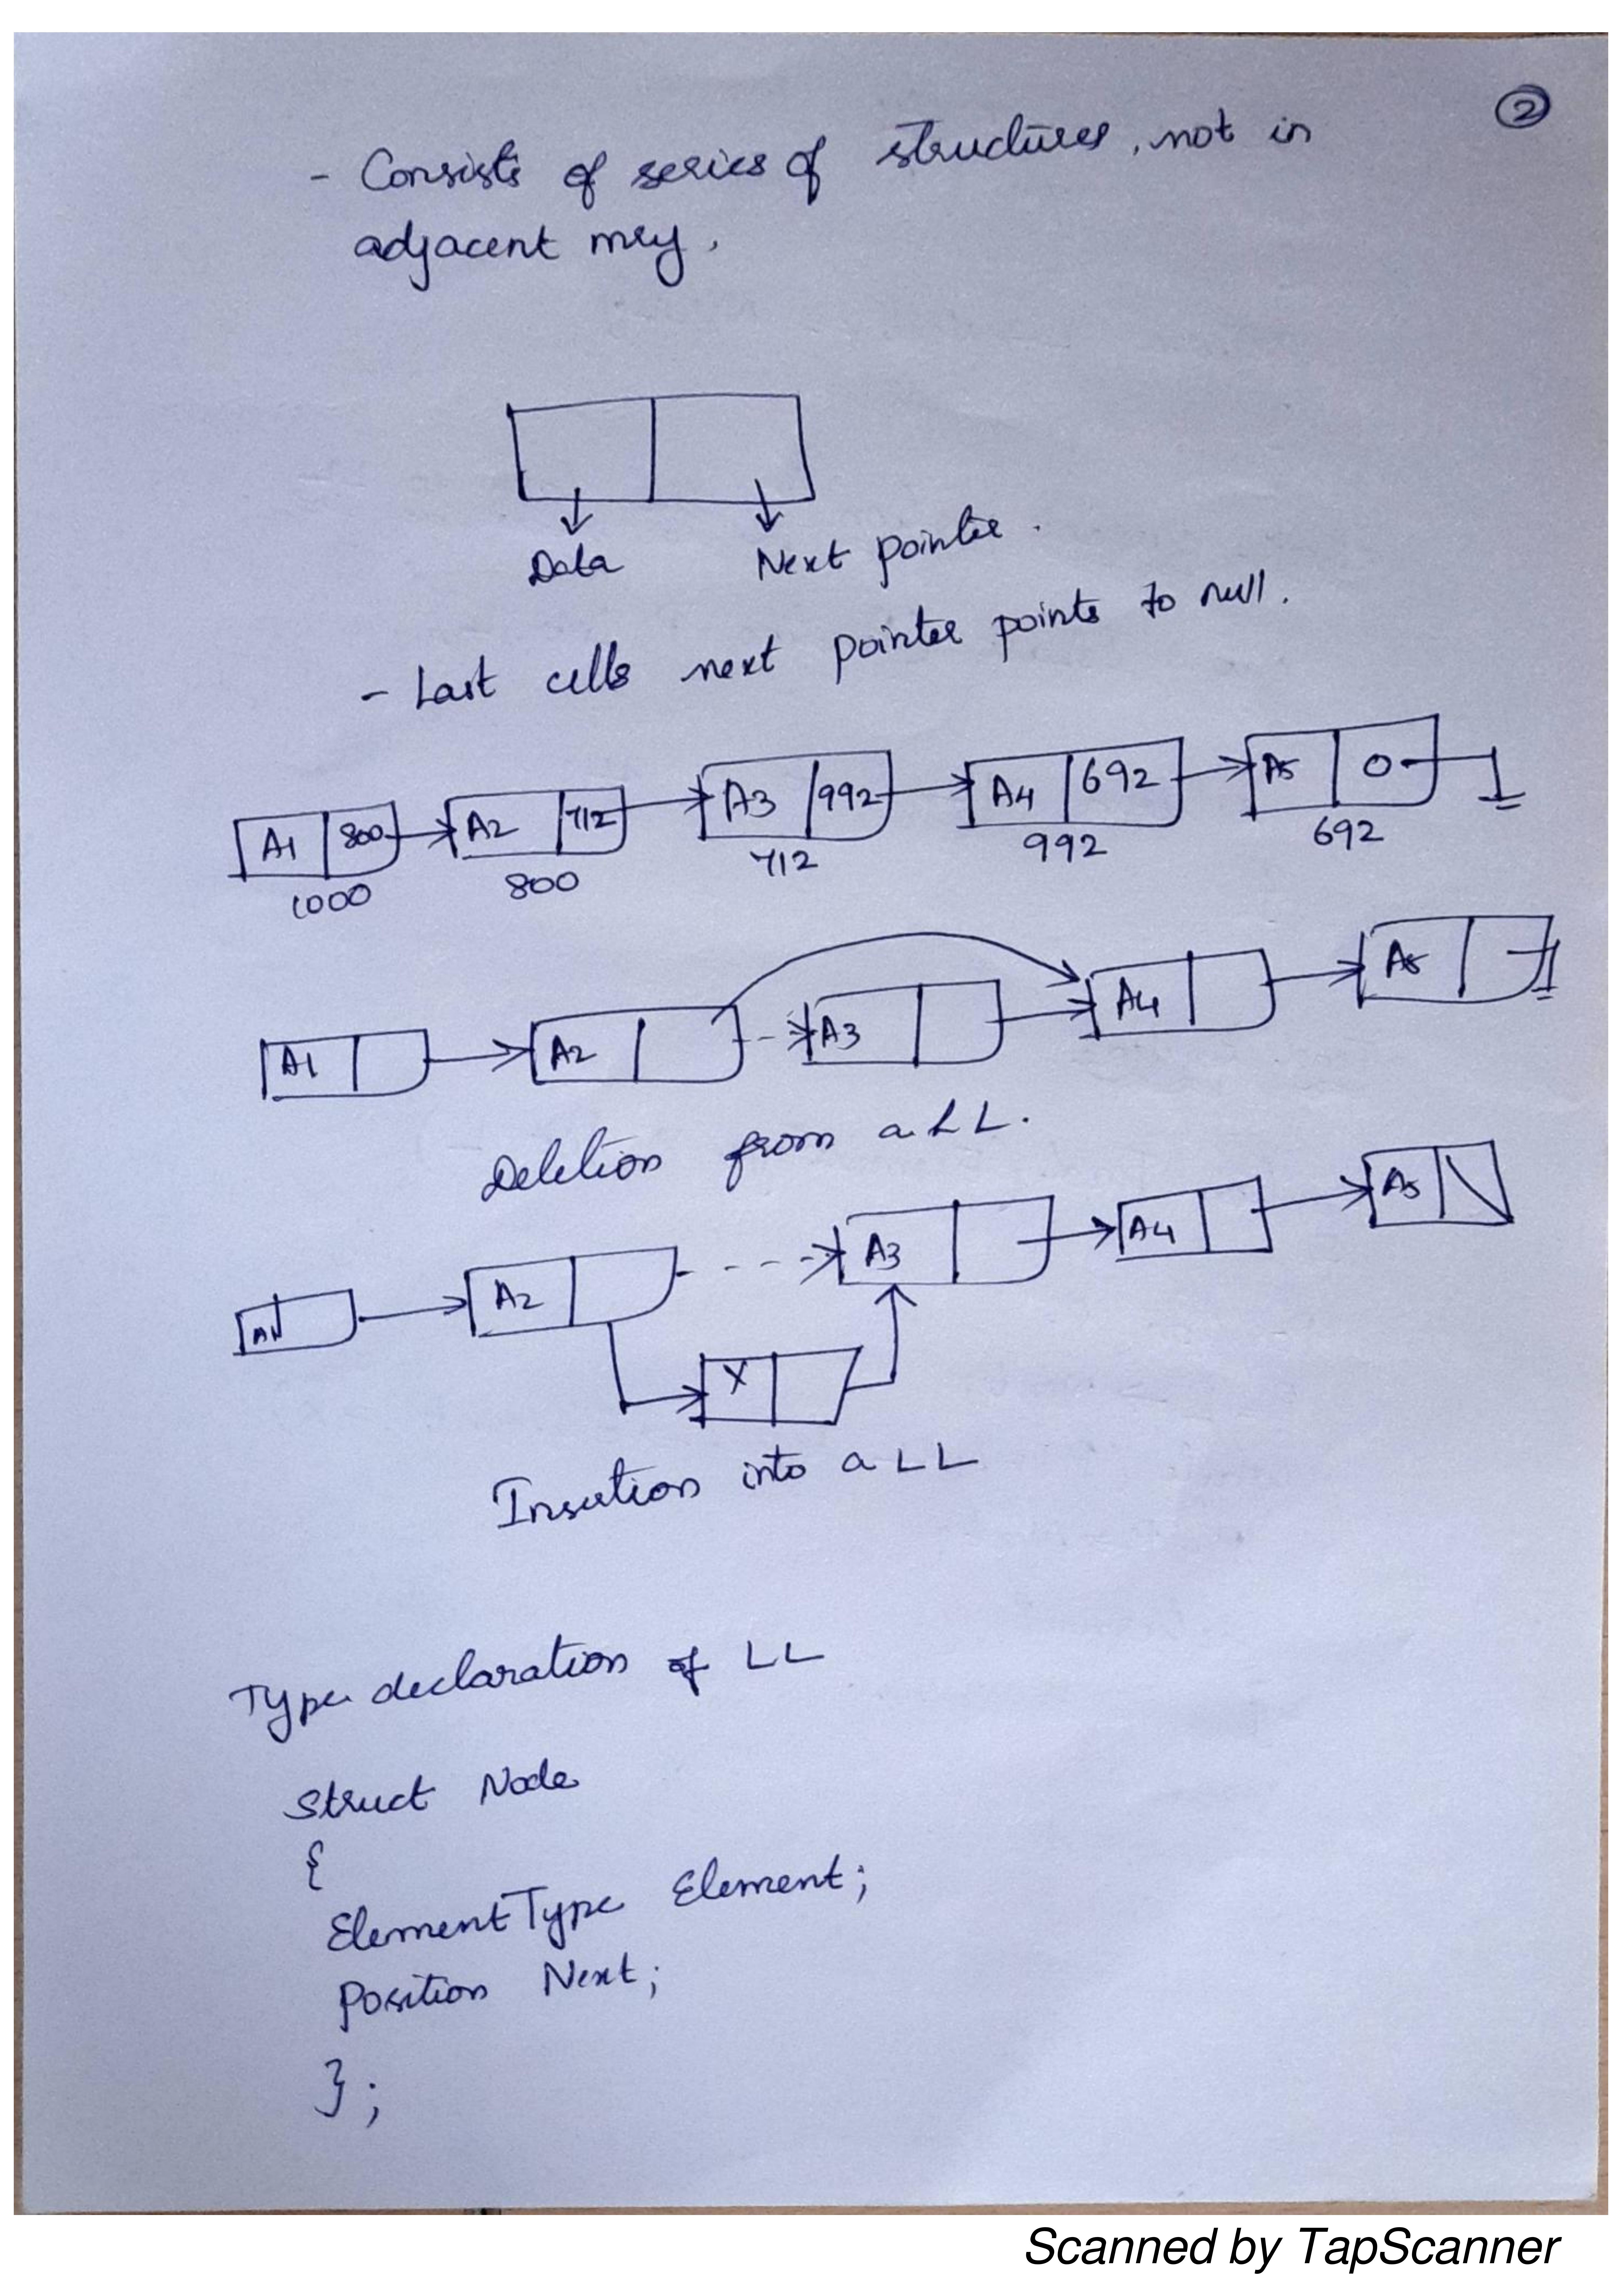 ②
- Consists of series of structures, not in
adjacent mry.
Data Next pointer.
- Last cells next pointer points to null.
A1 800 A2 712 A3 992 A4 692 A5 0
1000 800 712 992 692
A1 A2 A3 A4 A5
Deletion from a LL.
A1 A2 A3 A4 A5
X
Insertion into a LL
Type declaration of LL
Struct Node
{
ElementType Element;
Position Next;
};
Scanned by TapScanner